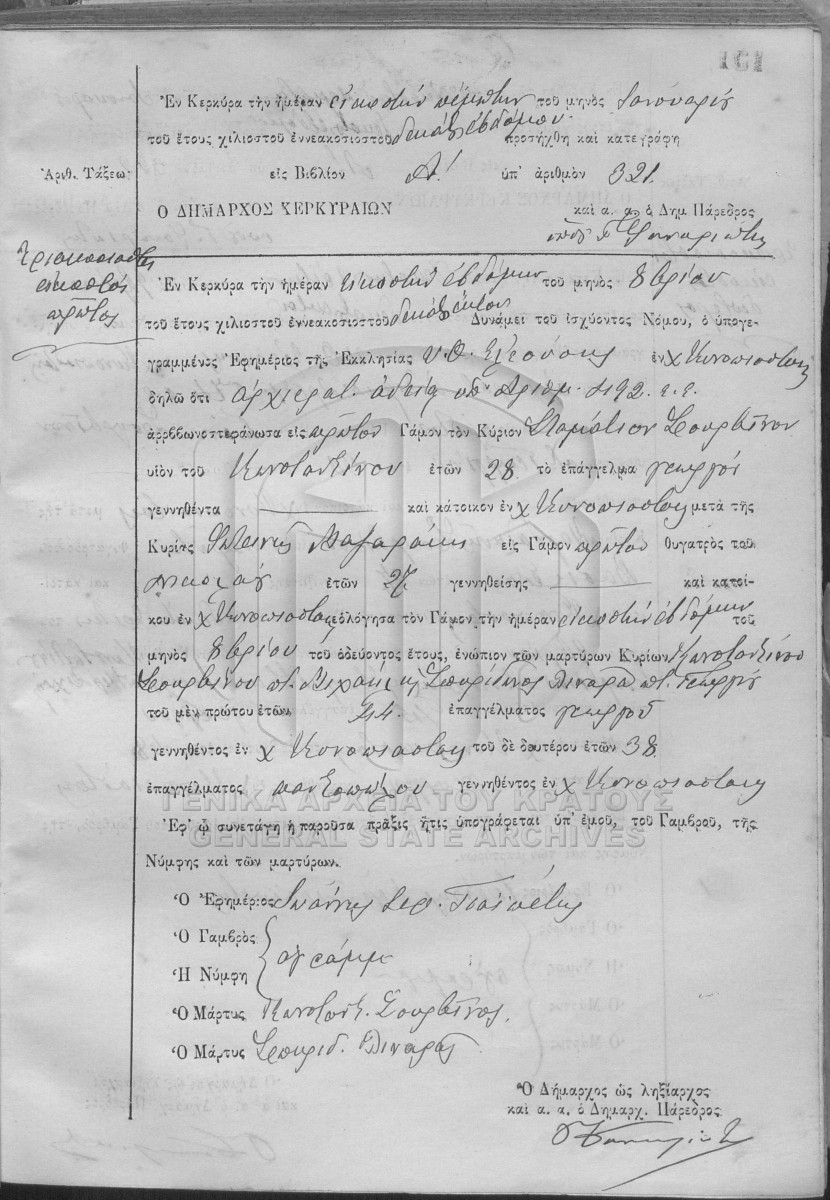 Ἐν Κερκύρᾳ τὴν ἡμέραν εἰκοστὴν πέμπτην τοῦ μηνὸς Ἰανουαρίου
τοῦ ἔτους χιλιοστοῦ ἐννεακοσιοστοῦ δεκάτου ἑβδόμου προσήχθη καὶ κατεγράφη
Ἀριθ. Τάξεως εἰς Βιβλίον Α! ὑπ' ἀριθμὸν 321.
Ὁ ΔΗΜΑΡΧΟΣ ΚΕΡΚΥΡΑΙΩΝ καὶ α. α. ὁ Δημ. Πάρεδρος
τριακοσιοστὸς
εἰκοστὸς
πρῶτος
Ἐν Κερκύρᾳ τὴν ἡμέραν εἰκοστὴν ἑβδόμην τοῦ μηνὸς 8βρίου
τοῦ ἔτους χιλιοστοῦ ἐννεακοσιοστοῦ δεκάτου ἕκτου Δυνάμει τοῦ ἰσχύοντος Νόμου, ὁ ὑπογε-
γραμμένος Ἐφημέριος τῆς Ἐκκλησίας Υ. Θ. Ἐλεούσης ἐν χ Κυνοπιαστῶν
δηλῶ ὅτι ἀρχιερατ. ἀδείᾳ ὑπ' ἀριθμ. 492. ε. ἔ.
ἀρρεβωνοστεφάνωσα εἰς πρῶτον Γάμον τὸν Κύριον Σταμάτιον Σουρβῖνον
υἱὸν τοῦ Κωνσταντίνου ἐτῶν 28 τὸ ἐπάγγελμα γεωργὸν
γεννηθέντα καὶ κάτοικον ἐν χ Κυνοπιαστῶν μετὰ τῆς
Κυρίας Φωτεινῆς εἰς Γάμον πρῶτον θυγατρὸς τοῦ
Νικολάου ἐτῶν 27 γεννηθείσης καὶ κατοί-
κου ἐν χ Κυνοπιαστῶν εὐλόγησα τὸν Γάμον τὴν ἡμέραν εἰκοστὴν ἑβδόμην τοῦ
μηνὸς 8βρίου τοῦ ὁδεύοντος ἔτους, ἐνώπιον τῶν μαρτύρων Κυρίων Κωνσταντίνου
Σουρβίνου π. Μιχαὴλ κ Σπυρίδωνος Λιναρᾶ π. Γεωργίου
τοῦ μὲν πρώτου ἐτῶν 44. ἐπαγγέλματος γεωργοῦ
γεννηθέντος ἐν χ Κυνοπιαστῶν τοῦ δὲ δευτέρου ἐτῶν 38
ἐπαγγέλματος παντοπώλου γεννηθέντος ἐν χ Κυνοπιαστῶν
ΓΕΝΙΚΑ ΑΡΧΕΙΑ ΤΟΥ ΚΡΑΤΟΥΣ
GENERAL STATE ARCHIVES
Ἐφ' ᾧ συνετάγη ἡ παροῦσα πρᾶξις ἥτις ὑπογράφεται ὑπ' ἐμοῦ, τοῦ Γαμβροῦ, τῆς
Νύμφης καὶ τῶν μαρτύρων.
Ὁ Ἐφημέριος Ἰωάννης Ἱερ.
Ὁ Γαμβρὸς
Ἡ Νύμφη ἀγράμμ
Ὁ Μάρτυς Κωνσταντ. Σουρβῖνος.
Ὁ Μάρτυς Σπυρίδ. Λιναρᾶς
Ὁ Δήμαρχος ὡς ληξίαρχος
καὶ α. α. ὁ Δημαρχ. Πάρεδρος